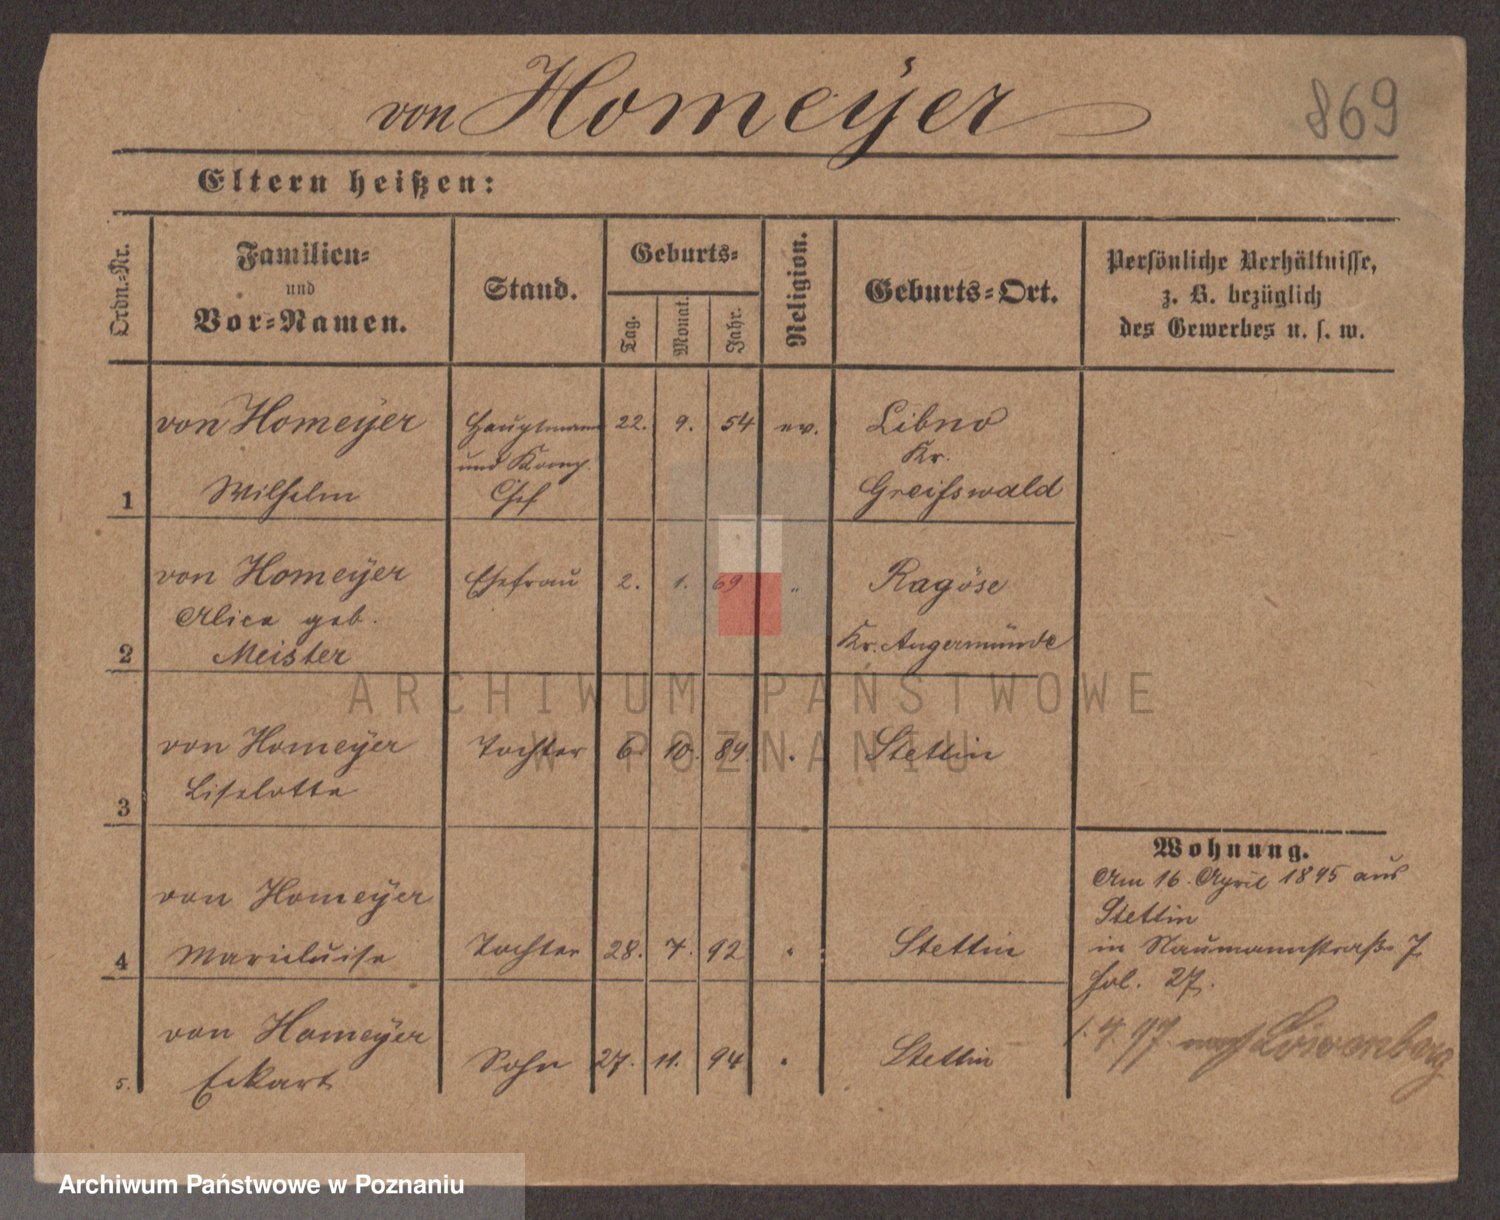 von Homeÿer
869
Eltern heißen:
Ordn.-Nr.
Familien-
und
Vor-Namen.
Stand.
Geburts-
Tag.
Monat.
Jahr.
Religion.
Geburts-Ort.
Persönliche Verhältnisse,
z. B. bezüglich
des Gewerbes u. s. w.
1
von Homeÿer
Wilhelm
Hauptmann
und Komp.
Chef
22. 9. 54 ev.
Libno
Kr.
Greifswald
2
von Homeÿer
Alice geb.
Meister
Ehefrau
2. 1. 69 "
Ragöse
Kr. Angermünde
3
von Homeÿer
Liselotte
Tochter
6. 10. 89. "
Stettin
4
von Homeÿer
Marieluise
Tochter
28. 7. 92 "
Stettin
5.
von Homeÿer
Eckart
Sohn
27. 11. 94 "
Stettin
Wohnung.
Am 16. April 1895 aus
Stettin
in Naumannstraße 7
fol. 27.
1.4.97. nach Löwenberg
ARCHIWUM PAŃSTWOWE
W POZNANIU
Archiwum Państwowe w Poznaniu